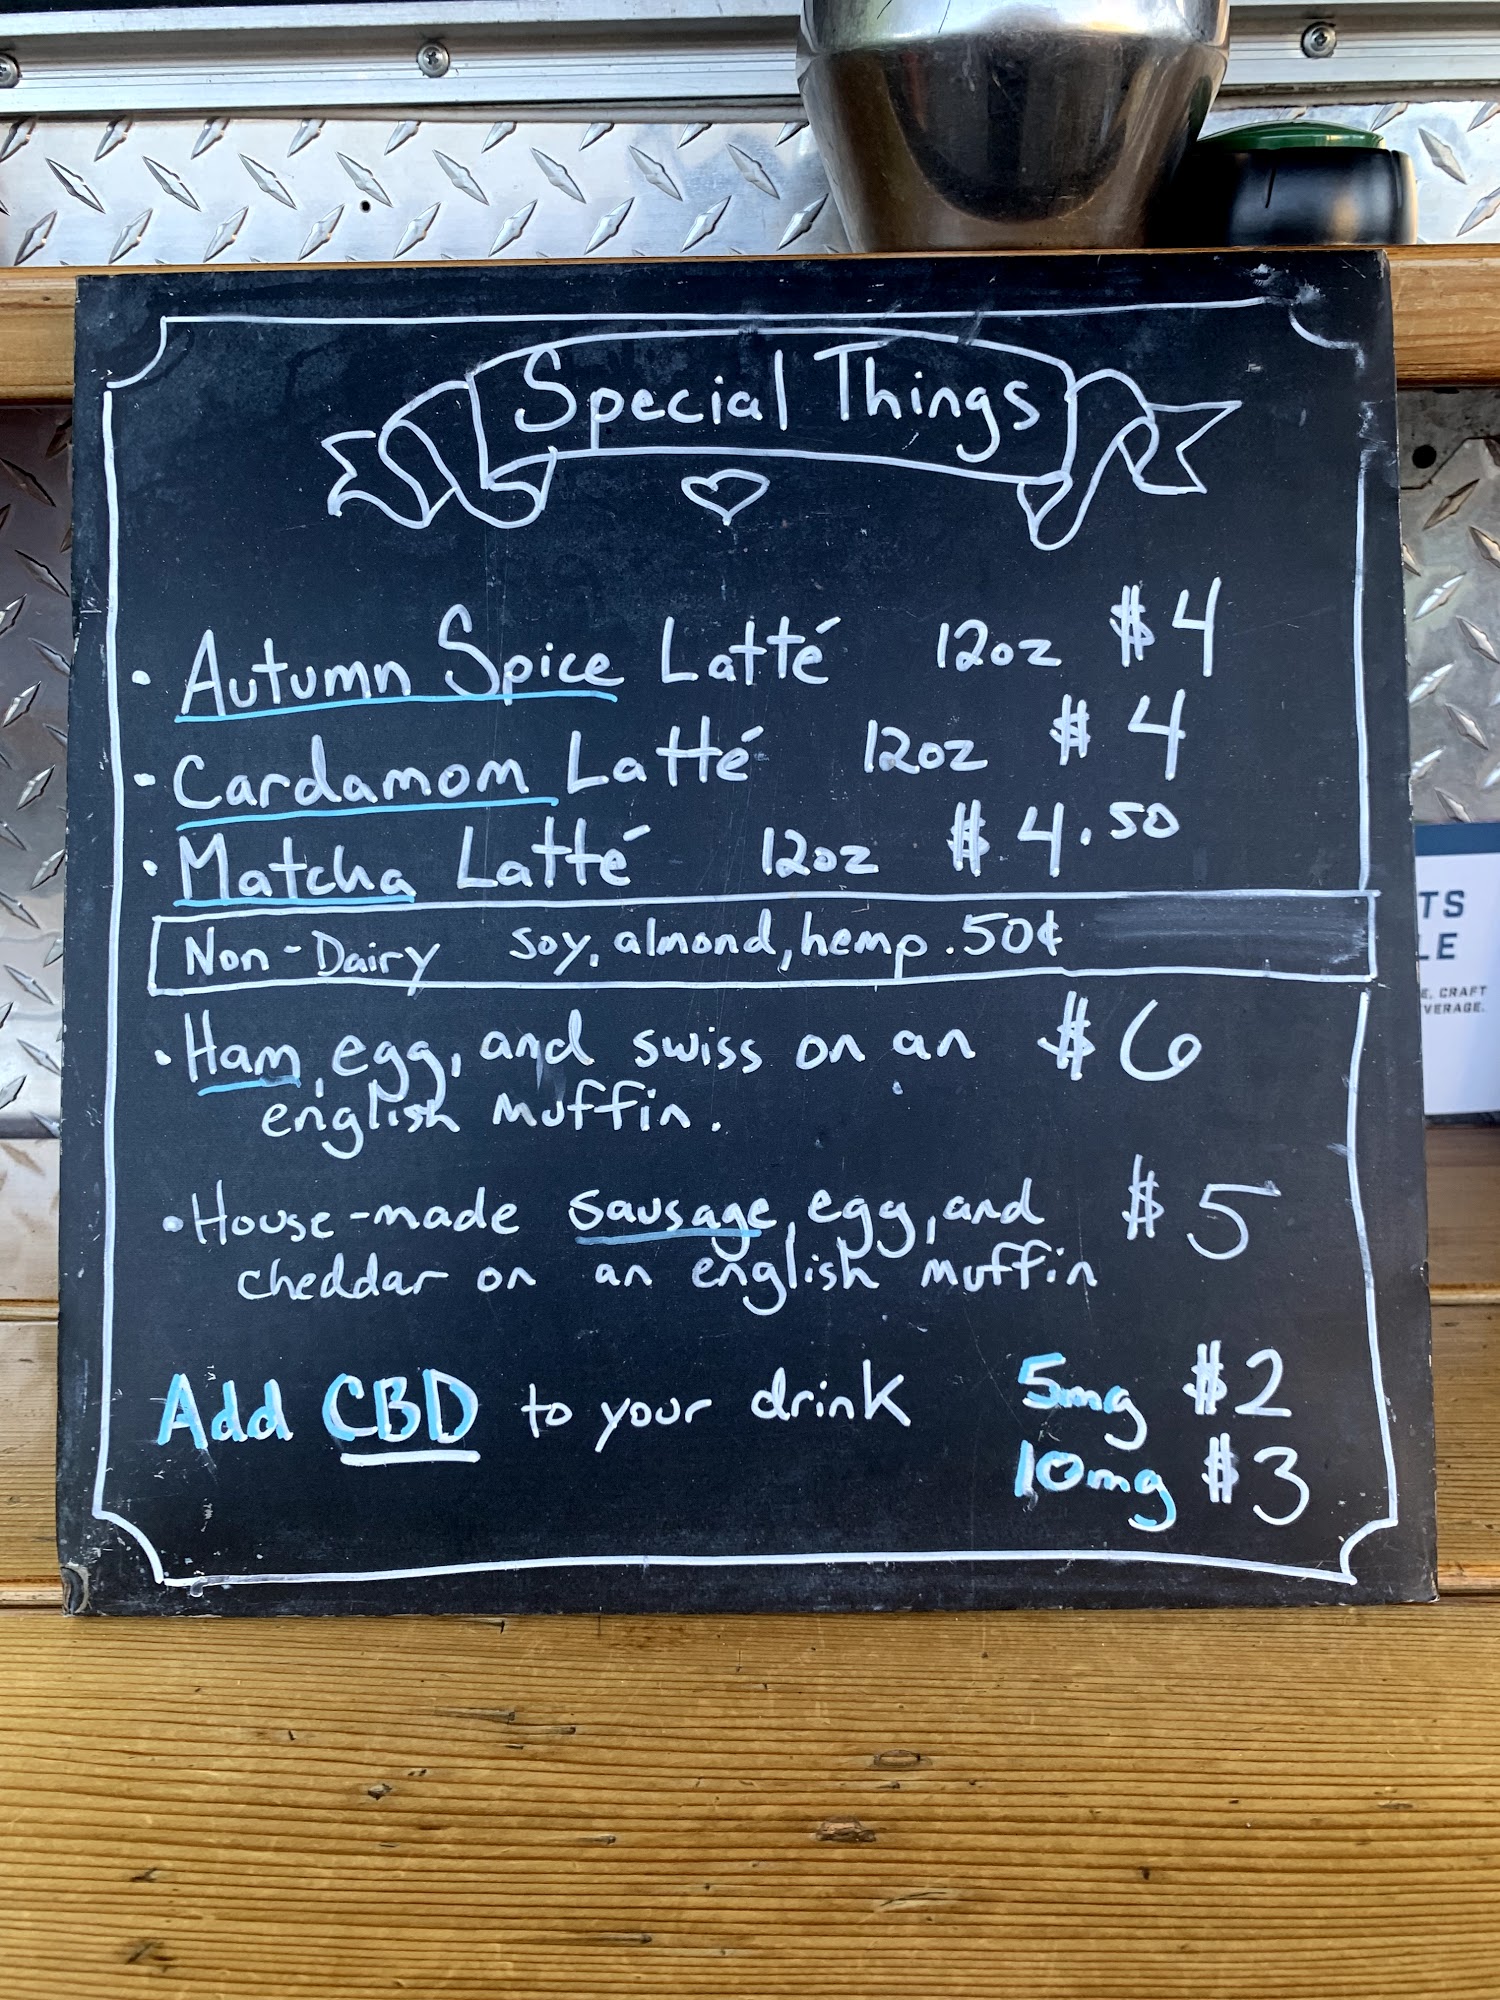 Special Things
· Autumn Spice Latté 12oz $4
· Cardamom Latté 12oz $4
· Matcha Latté 12oz $4.50
Non-Dairy soy, almond, hemp .50¢
· Ham, egg, and swiss on an $6
english muffin.
· House-made sausage, egg, and $5
cheddar on an english muffin
Add CBD to your drink 5mg $2
10mg $3
TS
LE
E, CRAFT
VERAGE.